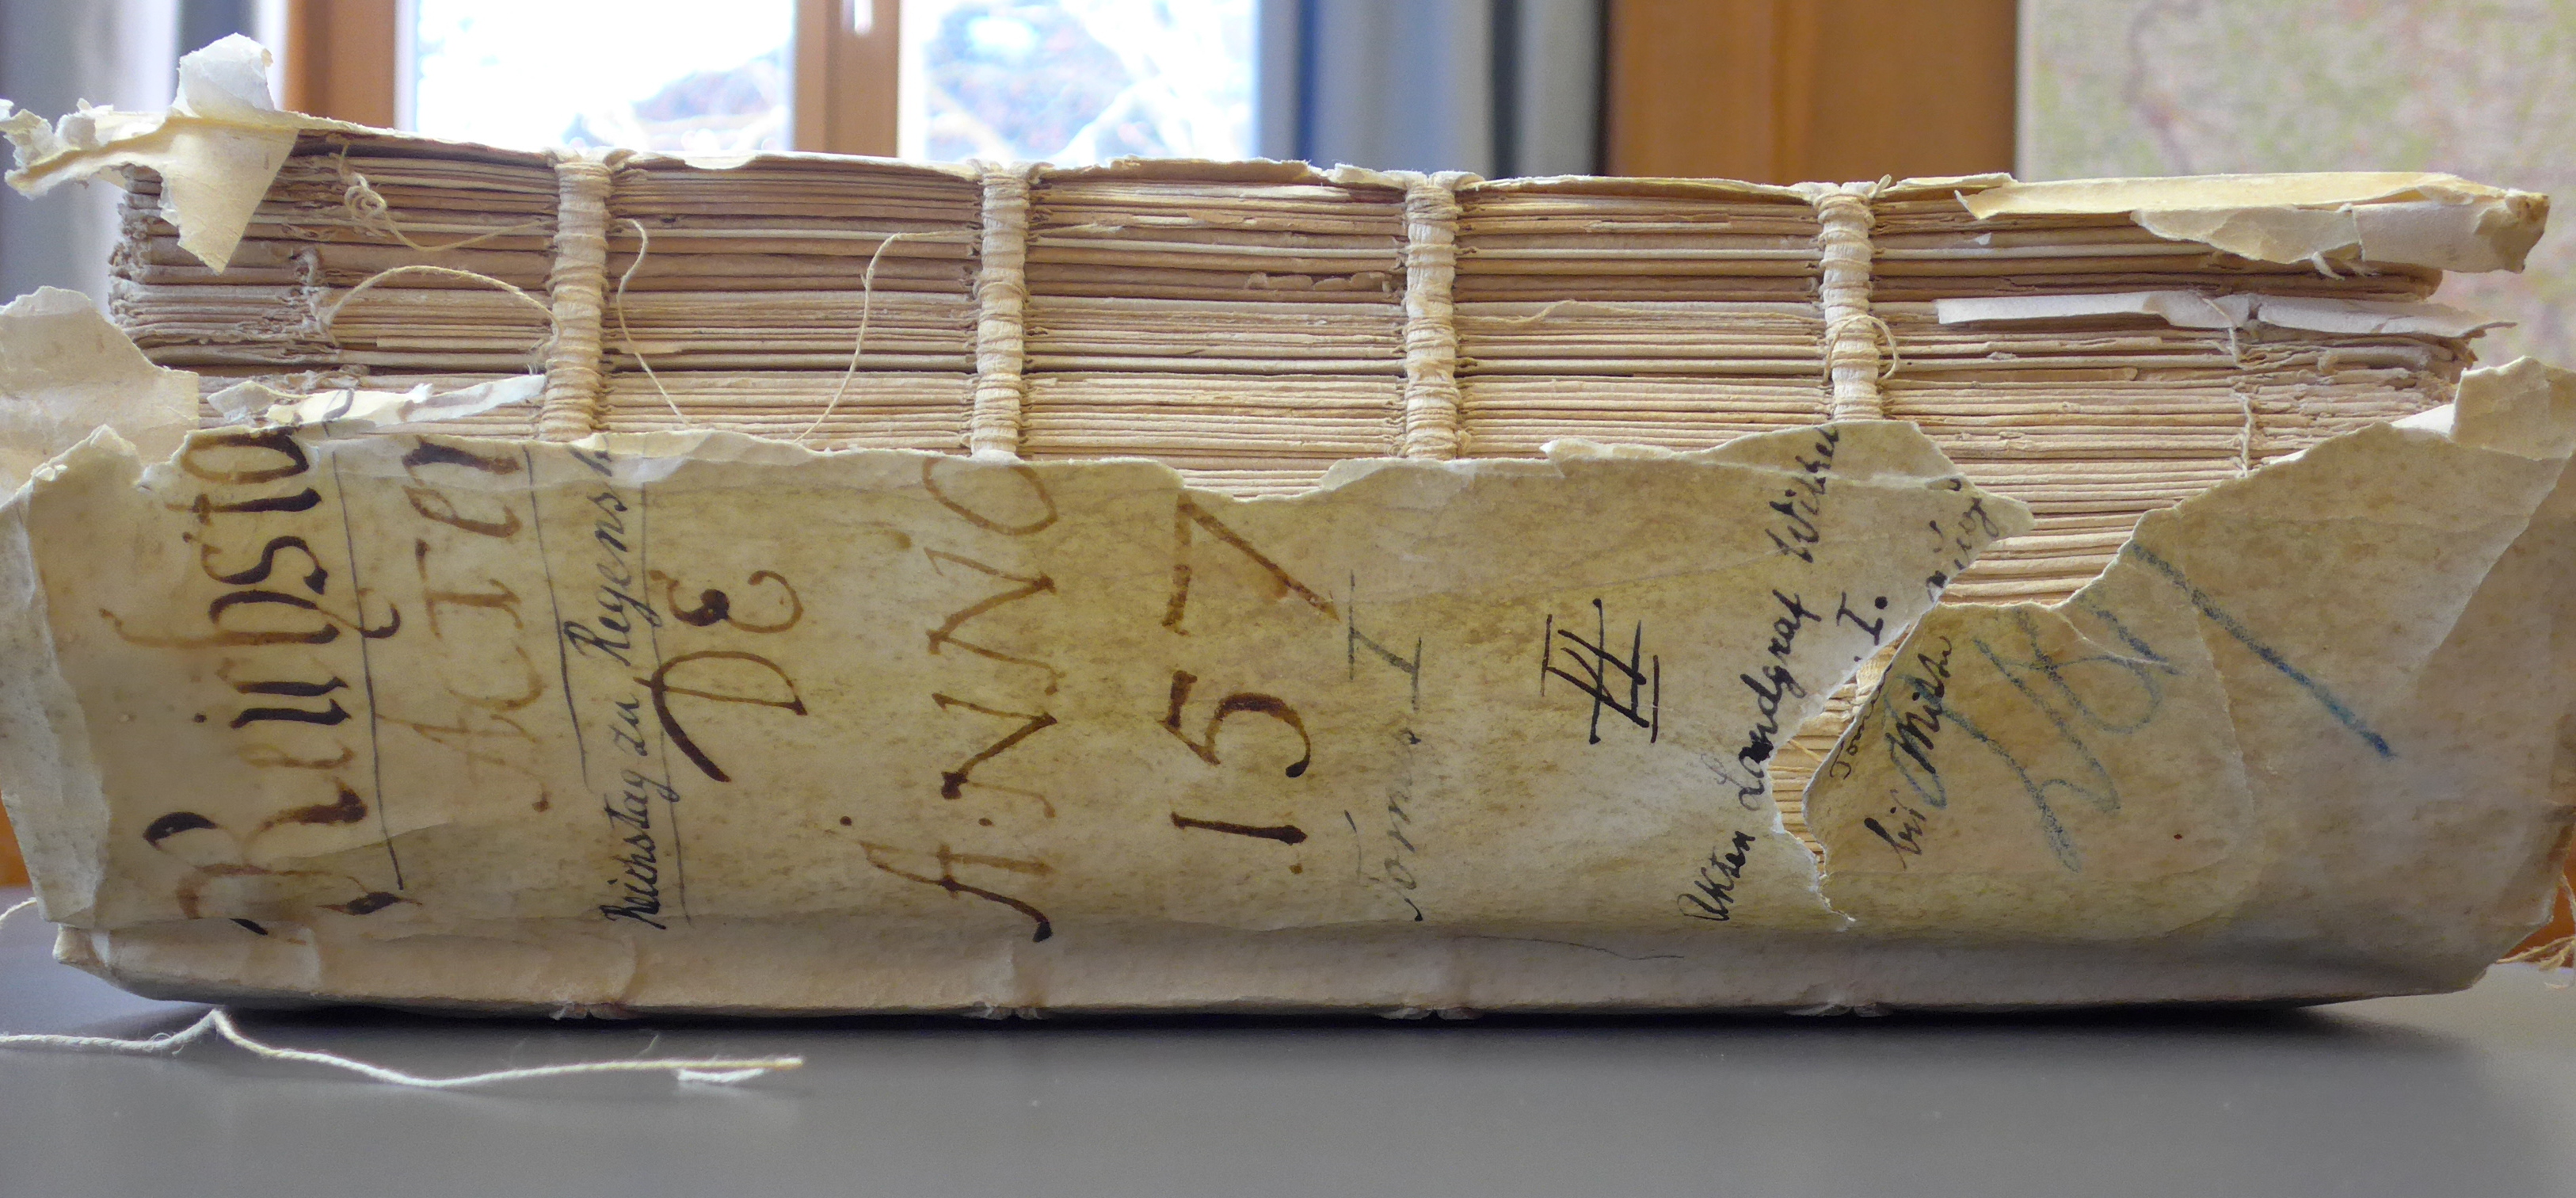 Reichsta
ACTen
Reichstag zu Regensb
DE
ANNO
157
Tomus I
II
Akten Landgraf Wilhel
I.
bis